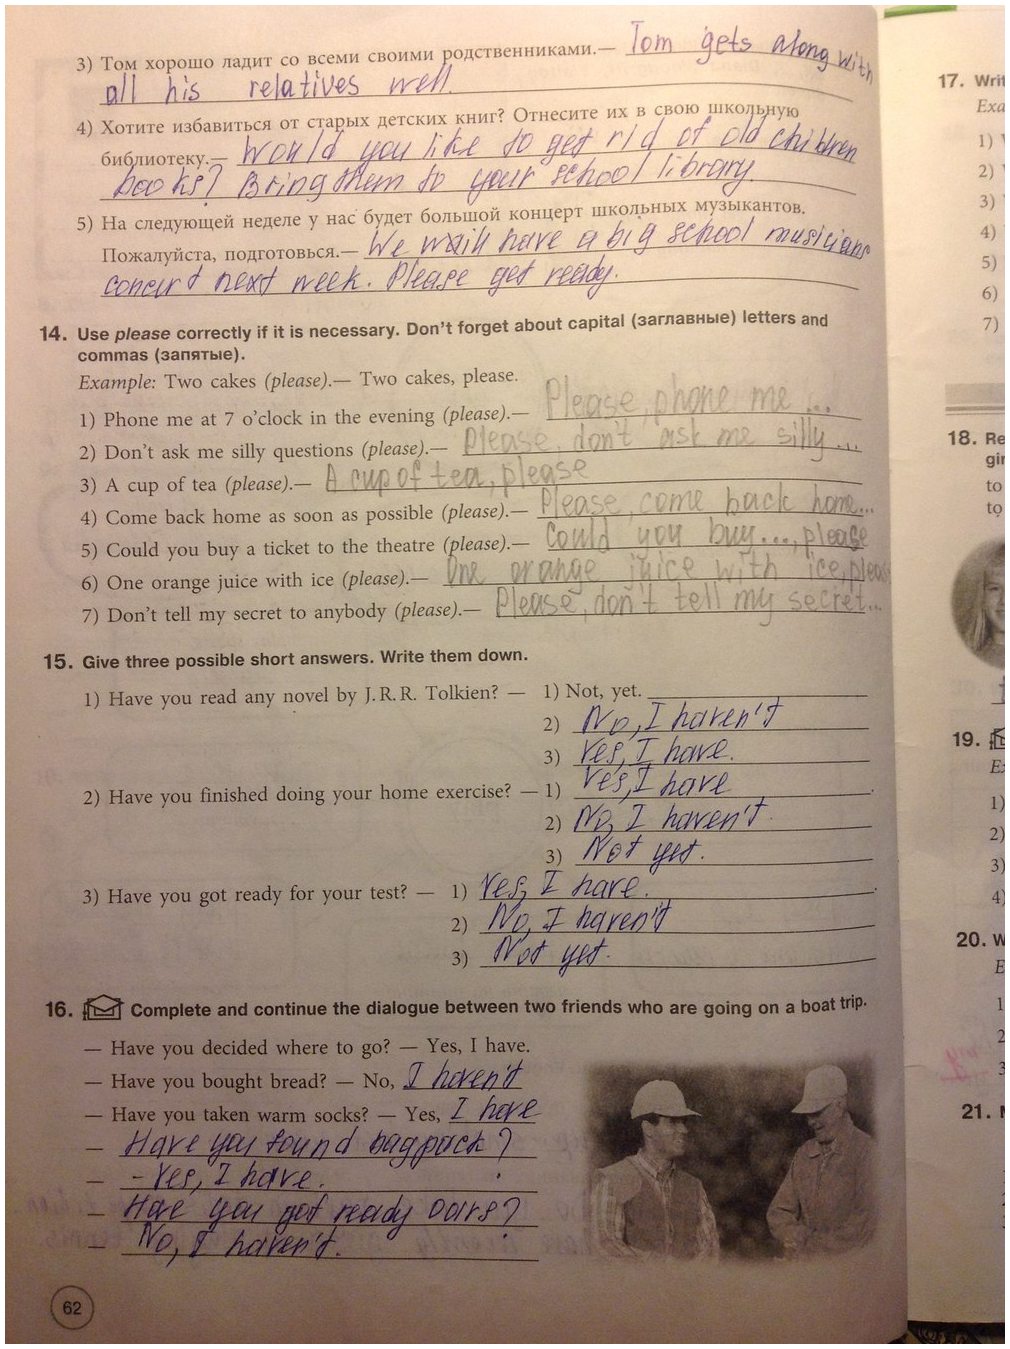 3) Том хорошо ладит со всеми своими родственниками.— Tom gets along with
all his relatives well.
4) Хотите избавиться от старых детских книг? Отнесите их в свою школьную
библиотеку.— Would you like to get rid of old children
books? Bring them to your school library.
5) На следующей неделе у нас будет большой концерт школьных музыкантов.
Пожалуйста, подготовься.— We will have a big school musicians
concert next week. Please get ready.
14. Use please correctly if it is necessary. Don't forget about capital (заглавные) letters and
commas (запятые).
Example: Two cakes (please).— Two cakes, please.
1) Phone me at 7 o'clock in the evening (please).— Please, phone me ...
2) Don't ask me silly questions (please).— Please, don't ask me silly ...
3) A cup of tea (please).— A cup of tea, please
4) Come back home as soon as possible (please).— Please, come back home...
5) Could you buy a ticket to the theatre (please).— Could you buy ..., please
6) One orange juice with ice (please).— One orange juice with ice, pleas
7) Don't tell my secret to anybody (please).— Please, don't tell my secret...
15. Give three possible short answers. Write them down.
1) Have you read any novel by J. R. R. Tolkien? — 1) Not, yet.
2) No, I haven't
3) Yes, I have.
2) Have you finished doing your home exercise? — 1) Yes, I have
2) No, I haven't.
3) Not yet.
3) Have you got ready for your test? — 1) Yes, I have.
2) No, I haven't
3) Not yet.
16. Complete and continue the dialogue between two friends who are going on a boat trip.
— Have you decided where to go? — Yes, I have.
— Have you bought bread? — No, I haven't
— Have you taken warm socks? — Yes, I have
— Have you found bagpack?
— - Yes, I have.
— Have you got ready oars?
— No, I haven't.
62
17. Writ
Exa
1)
2)
3)
4)
5)
6)
7)
18. Re
gir
to
to
19.
E
1)
2)
3)
4)
20. W
E
1
2
3
21.